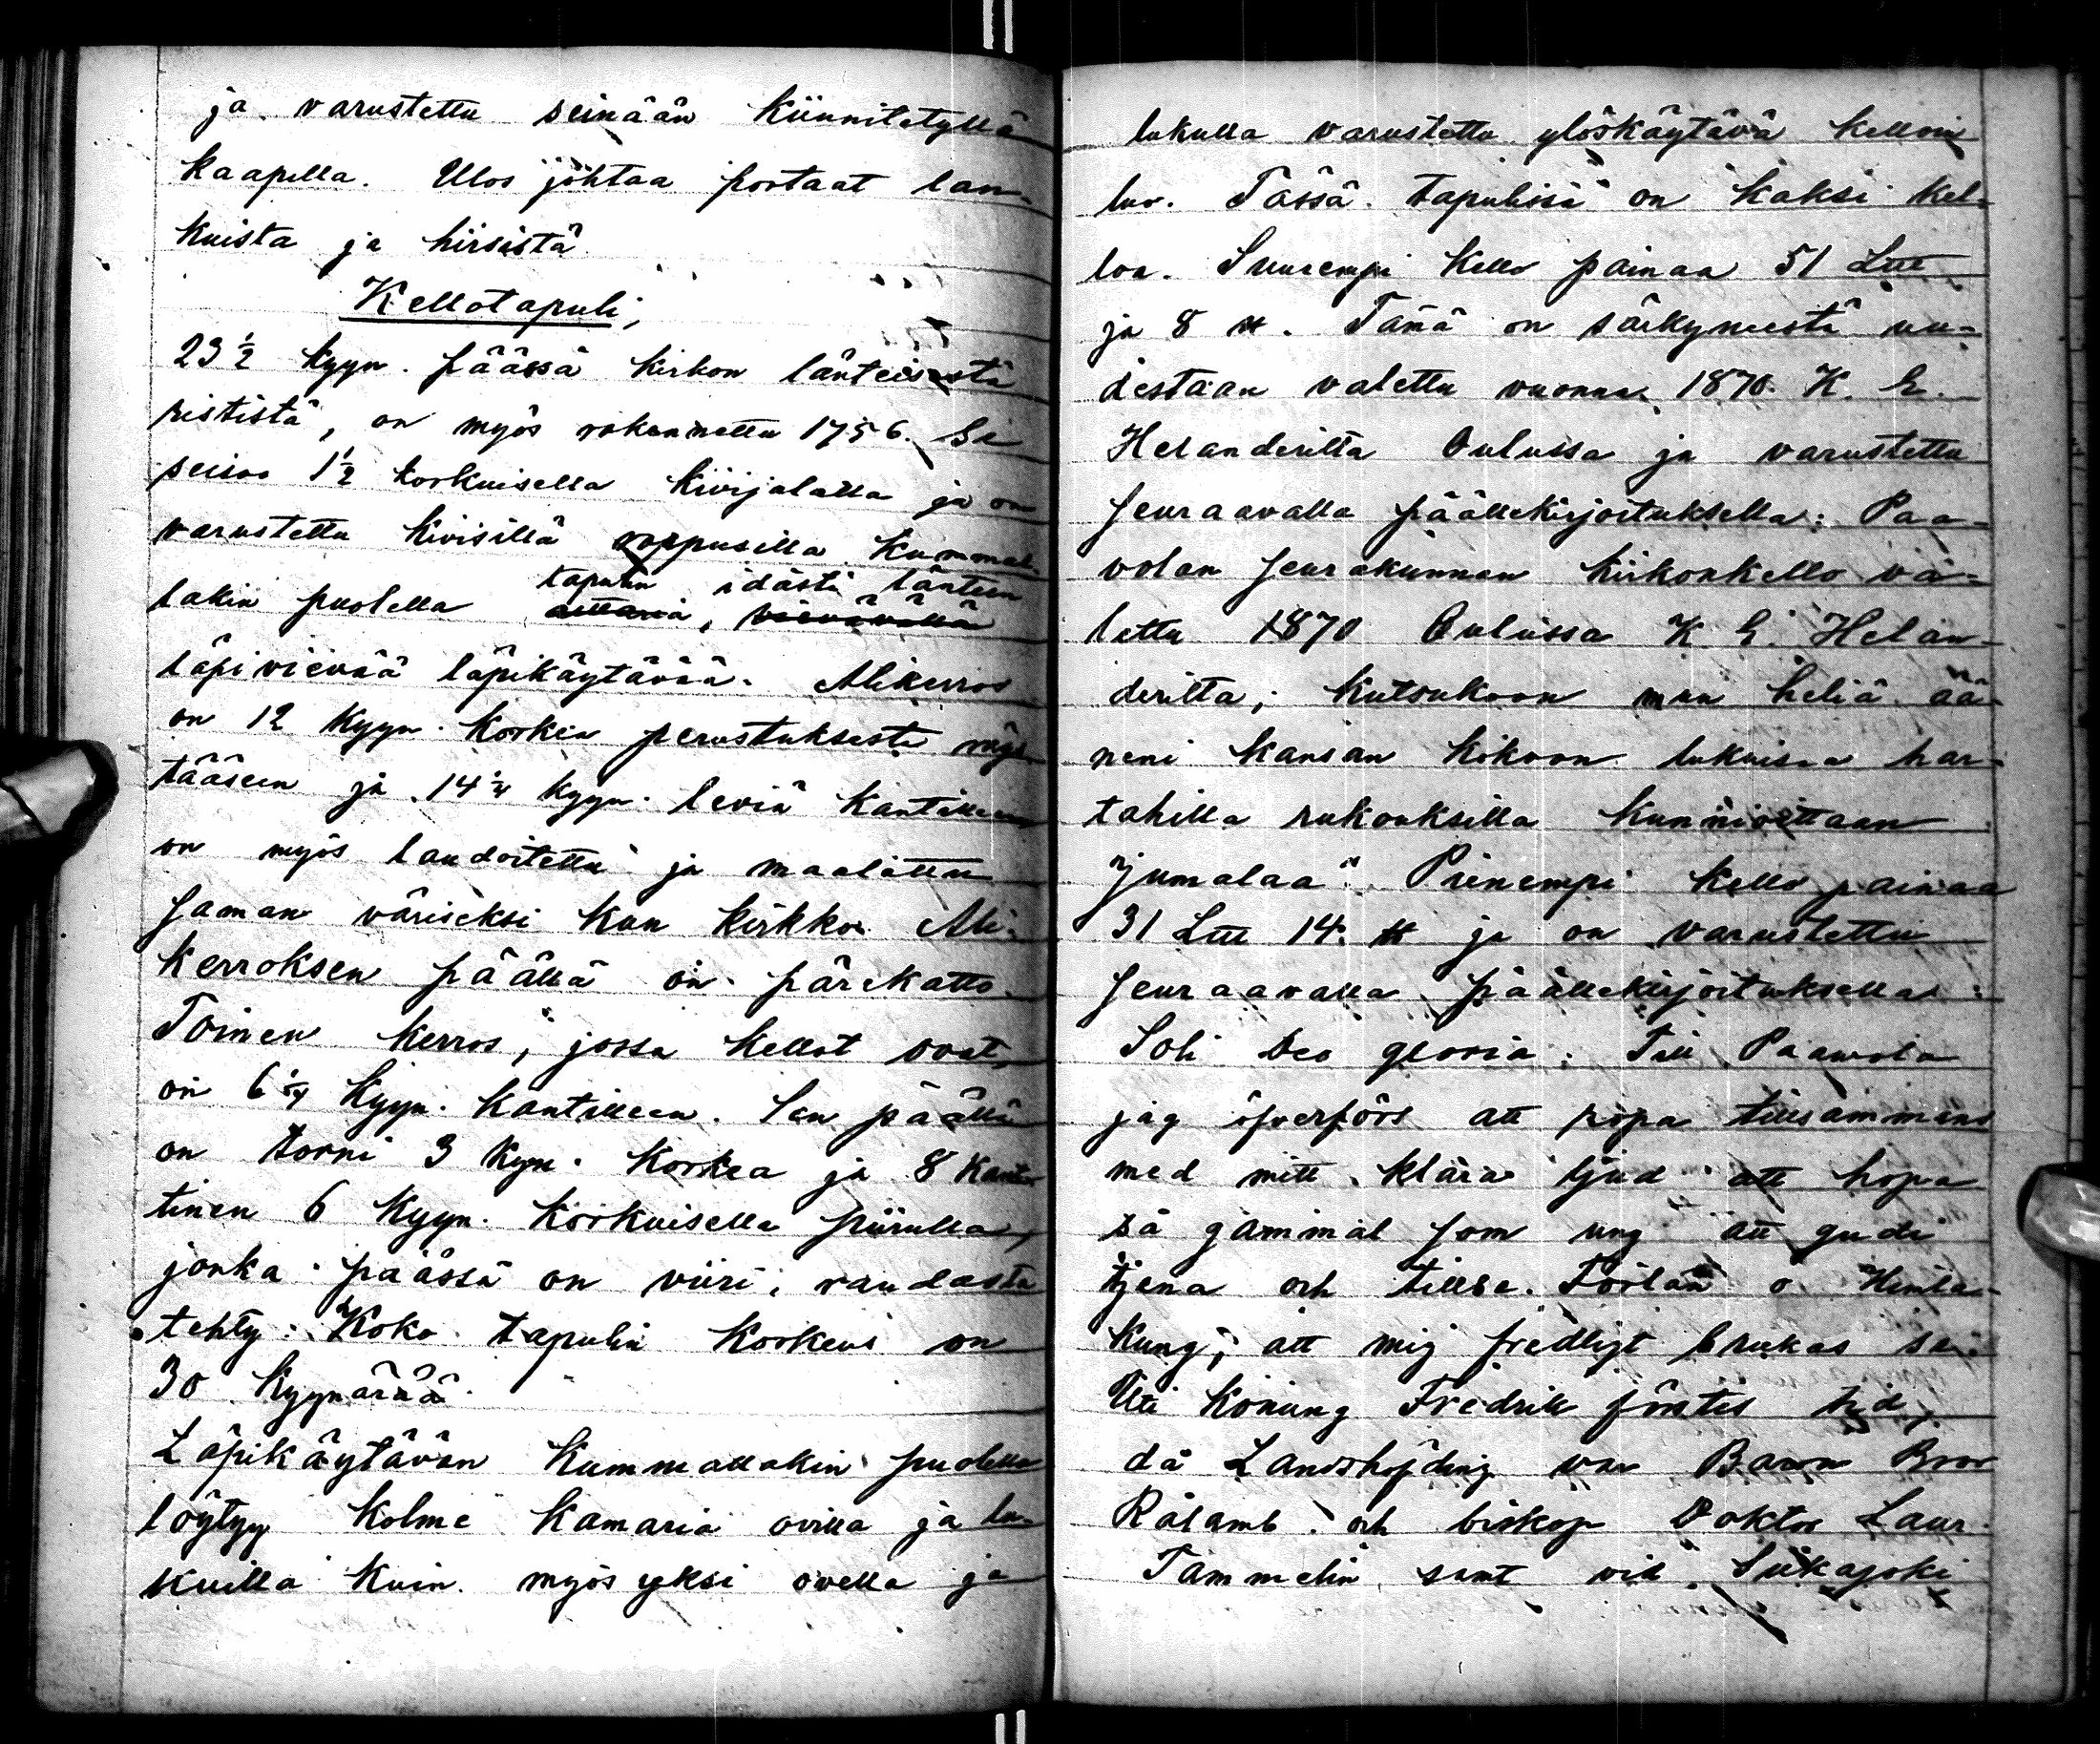 ja varustettu seinään kiinnitetyllä
kaapilla. Ulos johtaa portaat lan-
kuista ja hirsistä
Kellotapuli,
23 1/2 kyyn. päässä kirkon länteisestä
rististä, on myös rakennettu 1756. Se
seisoo 1 1/2 korkuisella kivijalalla ja on
varustettu kivisillä rappusilla kummal-
lakin puolella
tapulin idästä länteen
läpivievää läpikäytävää. Alikerros
on 12 kyyn. korkea perustuksesta räys-
tääseen ja 14 1/4 kyyn. leviä kantilleen
on myös laudoitettu ja maalattu
saman väriseksi kun kirkko. Ali-
kerroksen päällä on pärekatto.
Toinen kerros, jossa kellot ovat,
on 6 1/4 kyyn. kantilleen. Sen päällä
on torni 3 kyyn. korkea ja 8 kant-
tinen 6 kyyn. korkuisella piirulla,
jonka päässä on viiri, raudasta
tehty. Koko tapulin korkeus on
30 kyynärää.
Läpikäytävän kummallakin puolella
löytyy kolme kamaria ovilla ja lu-
kuilla kuin myös yksi ovella ja
lukulla varustettu ylöskäytävä kelloin
luo. Tässä tapulissa on kaksi kel-
loa. Suurempi kello painaa 51 L℔
ja 8 ℔. Tämä on särkyneestä uu-
destaan valettu vuonna 1870 K. E.
Helanderilta Oulussa ja varustettu
seuraavalla päällekirjoituksella: Paa-
volan seurakunnan kirkonkello va-
lettu 1870 Oulussa K. E. Helan-
derilta; kutsukoon mun heliä ää-
neni kansan kokoon lukuisaa har-
tahilla rukouksilla kunnioittaan
Jumalaa". Pienempi kello painaa
31 L℔ 14 ℔ ja on varustettu
seuraavalla päällekirjoituksella:
Soli Deo gloria. Till Paawola
jag öfverförs att ropa tillsammans
med mitt klara ljud att hopa
så gammal som ung att gudi
tjena och tillbe. Förlän o Himla-
kung, att mig fredligt brukas se.
Uti Konung Fredrik förstes tid,
då Landshöfding var Baron Bror
Rålamb och biskop Doktor Laur.
Tammelin samt vid Siikajoki